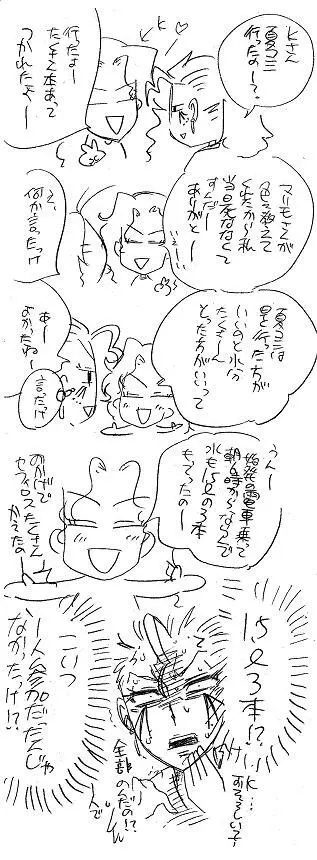 Kさん
夏コミ
行ったのー？
K
行たよー
たくさん本あって
つかれたよー
マリモさんが
色々教えて
くれたから私
当日死ななくて
すんだー
ありがとー
え、
何か言ったっけ
夏コミは
早く行った方が
いいのと水分
たくさーん
とった方がいいって
あー
よかったねー
言ったっけ
うんー
始発の電車乗って
朝6時からならんで
水も1.5ℓの3本
もってったのー
おかげで
セフィロスたくさん
かえたの
1.5ℓ3本!?
K…
恐ろしい子…
全部
のんだの!?
こいつ
一人参加だったんじゃ
なかたっけ!?